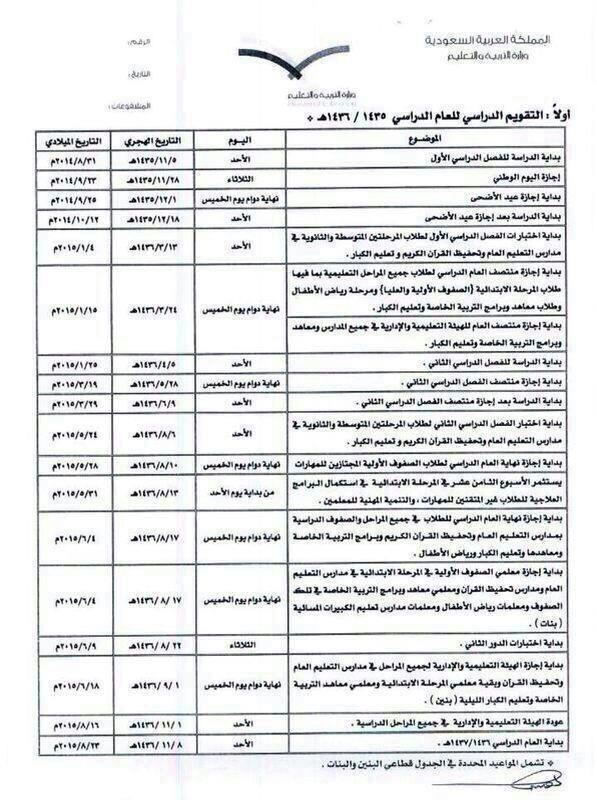 المملكة العربية السعودية
وزارة التربية والتعليم
وزارة التربية والتعليم
الرقم :
التاريخ :
المشفوعات :
أولاً : التقويم الدراسي للعام الدراسي ١٤٣٥ / ١٤٣٦هـ *
الموضوع اليوم التاريخ الهجري التاريخ الميلادي
بداية الدراسة للفصل الدراسي الأول الأحد ١٤٣٥/١١/٥هـ ٢٠١٤/٨/٣١م
إجازة اليوم الوطني الثلاثاء ١٤٣٥/١١/٢٨هـ ٢٠١٤/٩/٢٣م
بداية إجازة عيد الأضحى نهاية دوام يوم الخميس ١٤٣٥/١٢/١هـ ٢٠١٤/٩/٢٥م
بداية الدراسة بعد إجازة عيد الأضحى الأحد ١٤٣٥/١٢/١٨هـ ٢٠١٤/١٠/١٢م
بداية اختبارات الفصل الدراسي الأول لطلاب المرحلتين المتوسطة والثانوية في
مدارس التعليم العام وتحفيظ القرآن الكريم و تعليم الكبار . الأحد ١٤٣٦/٣/١٣هـ ٢٠١٥/١/٤م
بداية إجازة منتصف العام الدراسي لطلاب جميع المراحل التعليمية بما فيها
طلاب المرحلة الابتدائية (الصفوف الأولية والعليا) ومرحلة رياض الأطفال
وطلاب معاهد وبرامج التربية الخاصة وتعليم الكبار . نهاية دوام يوم الخميس ١٤٣٦/٣/٢٤هـ ٢٠١٥/١/١٥م
بداية إجازة منتصف العام للهيئة التعليمية والإدارية في جميع المدارس ومعاهد
وبرامج التربية الخاصة وتعليم الكبار .
بداية الدراسة للفصل الدراسي الثاني . الأحد ١٤٣٦/٤/٥هـ ٢٠١٥/١/٢٥م
بداية إجازة منتصف الفصل الدراسي الثاني . نهاية دوام يوم الخميس ١٤٣٦/٥/٢٨هـ ٢٠١٥/٣/١٩م
بداية الدراسة بعد إجازة منتصف الفصل الدراسي الثاني الأحد ١٤٣٦/٦/٩هـ ٢٠١٥/٣/٢٩م
بداية اختبار الفصل الدراسي الثاني لطلاب المرحلتين المتوسطة والثانوية في
مدارس التعليم العام وتحفيظ القرآن الكريم و تعليم الكبار . الأحد ١٤٣٦/٨/٦هـ ٢٠١٥/٥/٢٤م
بداية إجازة نهاية العام الدراسي لطلاب الصفوف الأولية المجتازين للمهارات نهاية دوام يوم الخميس ١٤٣٦/٨/١٠هـ ٢٠١٥/٥/٢٨م
يستثمر الأسبوع الثامن عشر في المرحلة الابتدائية في استكمال البرامج
العلاجية للطلاب غير المتقنين للمهارات ، والتنمية المهنية للمعلمين . من بداية يوم الأحد ١٤٣٦/٨/١٣هـ ٢٠١٥/٥/٣١م
بداية إجازة نهاية العام الدراسي للطلاب في جميع المراحل والصفوف الدراسية
بمدارس التعليم العام وتحفيظ القرآن الكريم وبرامج التربية الخاصة
ومعاهدها وتعليم الكبار ورياض الأطفال . نهاية دوام يوم الخميس ١٤٣٦/٨/١٧هـ ٢٠١٥/٦/٤م
بداية إجازة معلمي الصفوف الأولية في المرحلة الابتدائية في مدارس التعليم
العام ومدارس تحفيظ القرآن ومعلمي معاهد وبرامج التربية الخاصة في تلك
الصفوف ومعلمات رياض الأطفال ومعلمات مدارس تعليم الكبيرات المسائية
( بنات ) . نهاية دوام يوم الخميس ١٤٣٦/٨/١٧هـ ٢٠١٥/٦/٤م
بداية اختبارات الدور الثاني . الثلاثاء ١٤٣٦/٨/٢٢هـ ٢٠١٥/٦/٩م
بداية إجازة الهيئة التعليمية والإدارية لجميع المراحل في مدارس التعليم العام
وتحفيظ القرآن وبقية معلمي المرحلة الابتدائية ومعلمي معاهد التربية
الخاصة وتعليم الكبار الليلية ( بنين ) . نهاية دوام يوم الخميس ١٤٣٦/٩/١هـ ٢٠١٥/٦/١٨م
عودة الهيئة التعليمية والإدارية في جميع المراحل الدراسية . الأحد ١٤٣٦/١١/١هـ ٢٠١٥/٨/١٦م
بداية العام الدراسي ١٤٣٧/١٤٣٦هـ . الأحد ١٤٣٦/١١/٨هـ ٢٠١٥/٨/٢٣م
* تشمل المواعيد المحددة في الجدول قطاعي البنين والبنات .